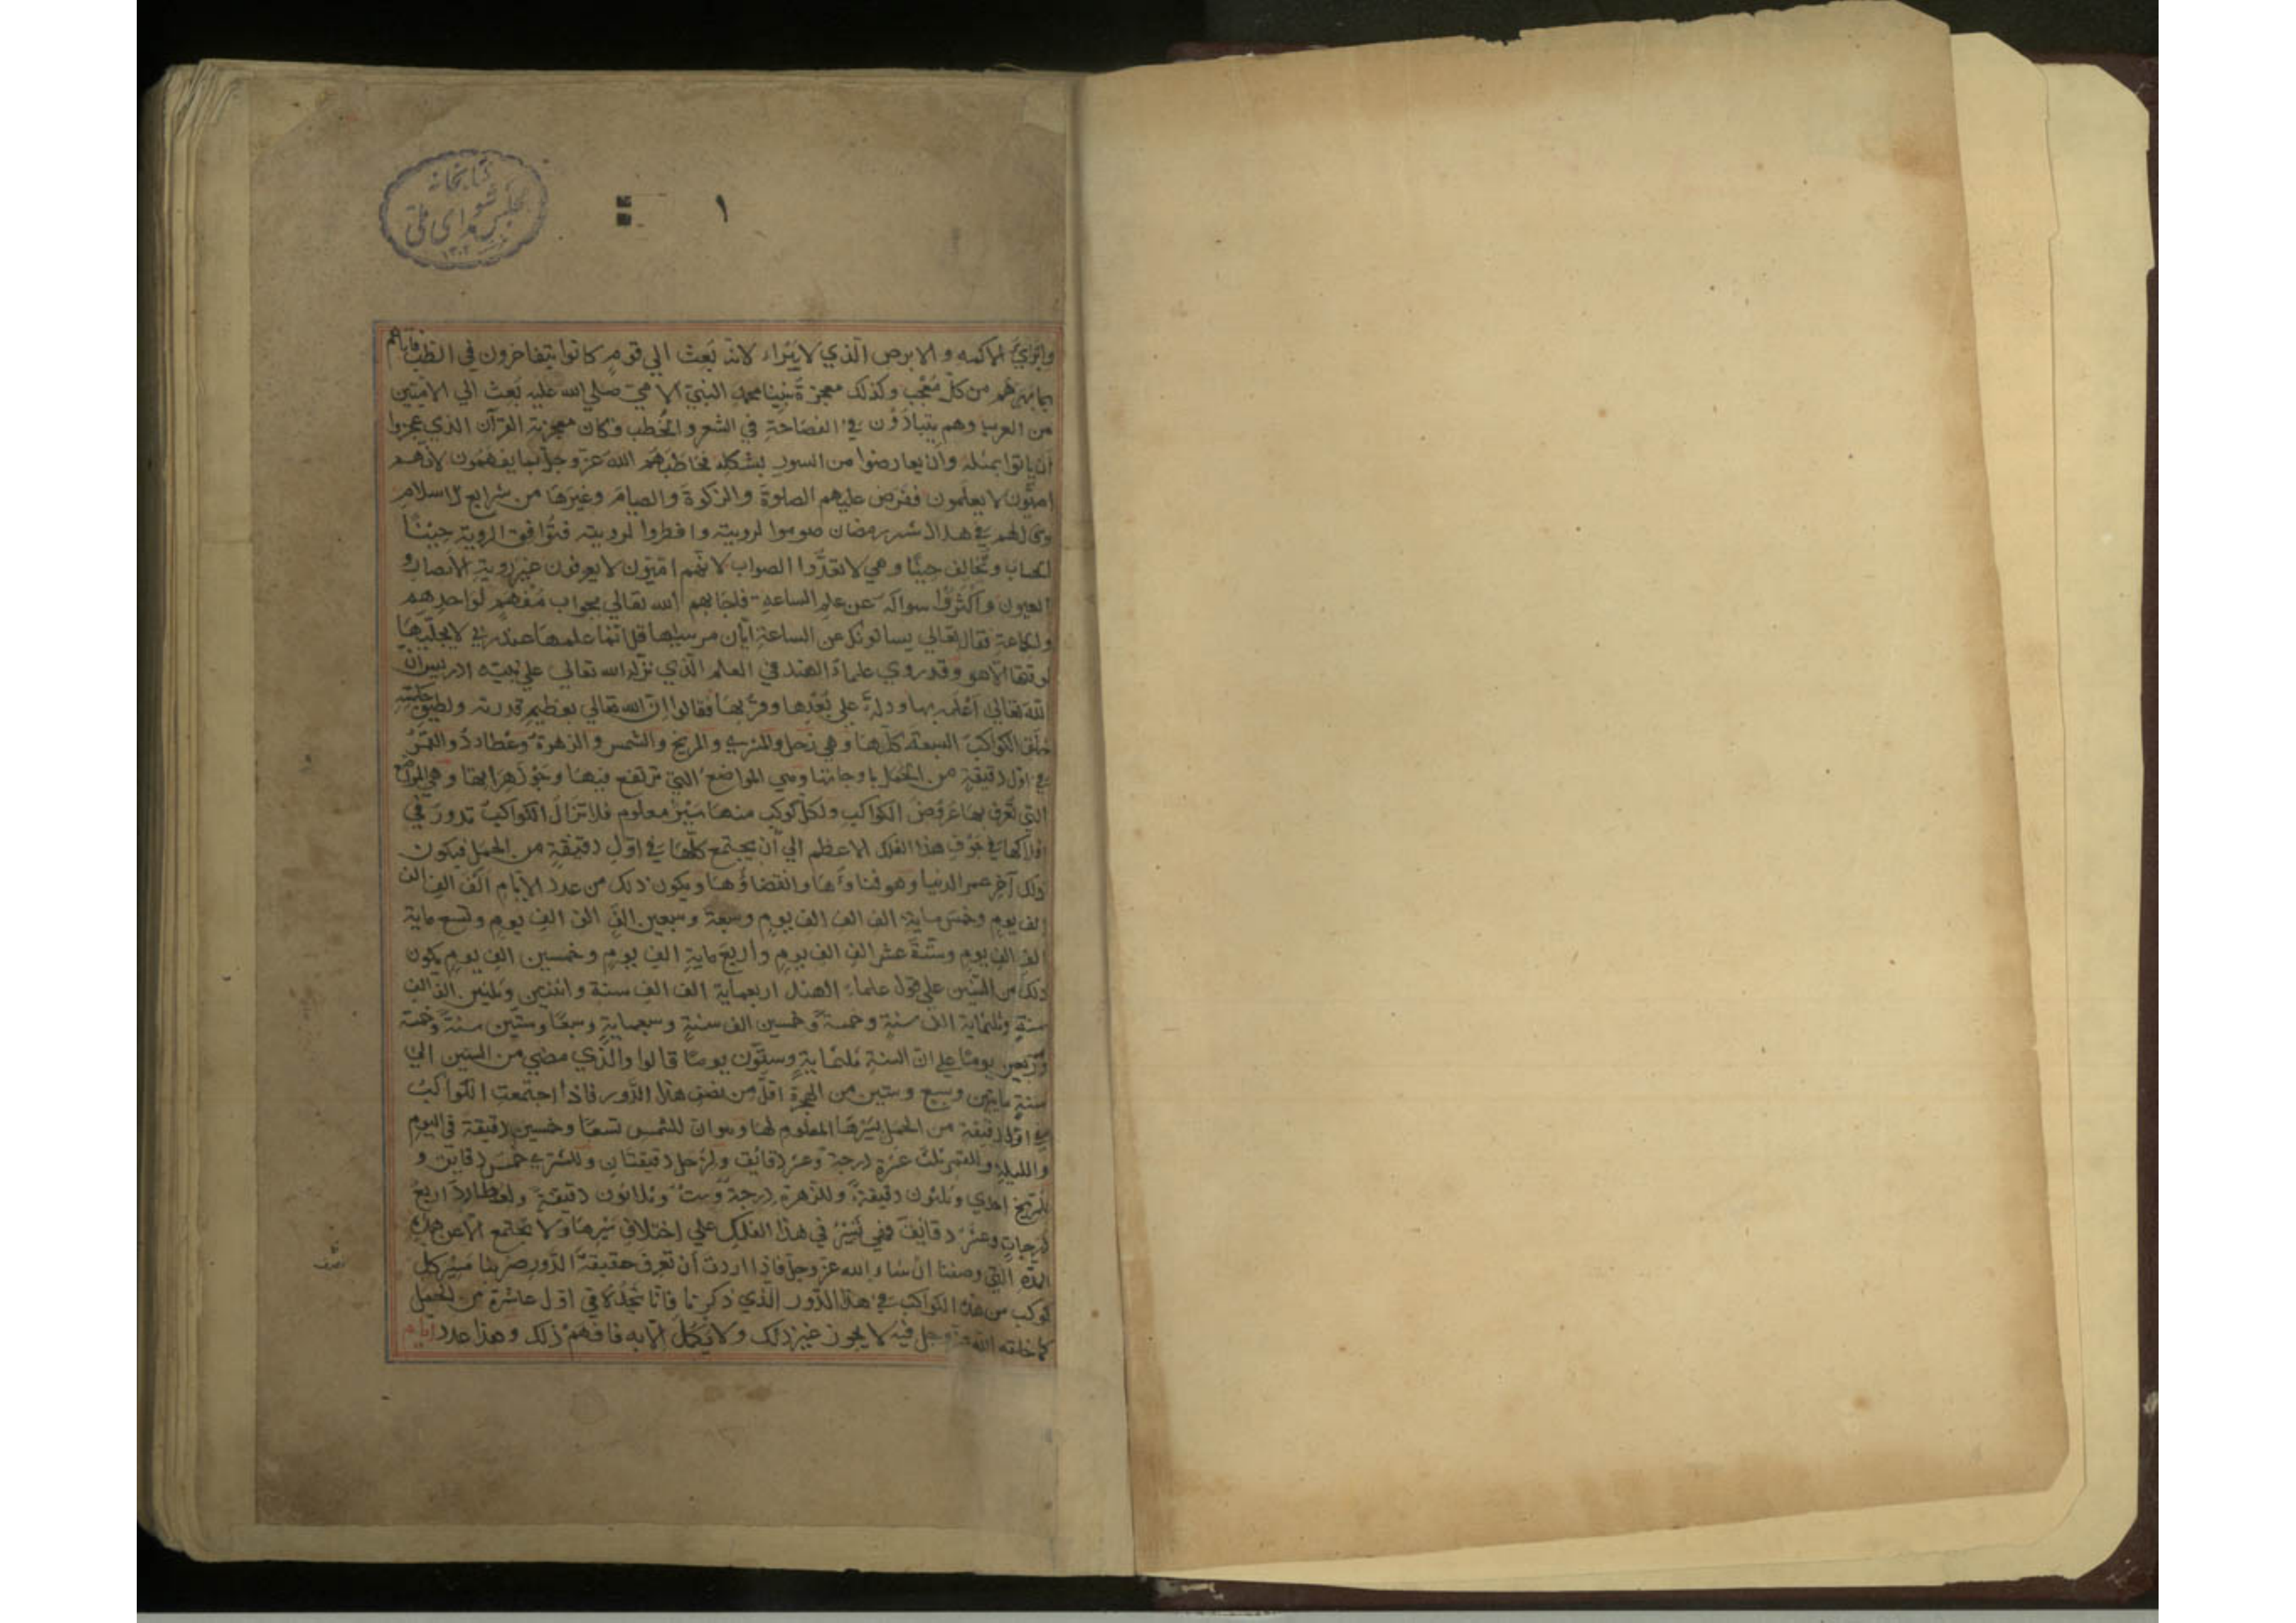 كتابخانه
مجلس شورای ملی
۱۳۰۲
۱
وابراي الاكمه و الابرص الذي لا يبراء لانه بعث الي قوم كانوا يتفاخرون في الطب فاتاهم
بما بهرهم من كل معجب وكذلك معجزة نبينا محمد النبي الامي صلي الله عليه بعث الي الاميين
من العرب وهم يتباذؤن في الفصاحة في الشعر والخطب فكان معجزته القرآن الذي عجزوا
ان ياتوا بمثله وان يعارضوا من السور بشكله فخاطبهم الله عز وجل بما يفهمون لانهم
اميون لا يعلمون ففرض عليهم الصلوة والزكوة والصيام وغيرها من شرايع الاسلام
لهم في هذا شهر رمضان صوموا لرويته وافطروا لرويته فتوافق الروية حينا
الحساب وتخالف حينا وهي لا تعدوا الصواب لانهم اميون لا يعرفون غير روية الابصار و
العيون واكثروا سواله عن علم الساعة فاجابهم الله تعالي بجواب مفهم لواحدهم
ولجماعة فقال تعالي يسالونك عن الساعة ايان مرسيها قل انما علمها عند ربي لا يجليها
لوقتها الا هو وقد روي علماء الهند في العلم الذي نزله الله تعالي علي نبيه ادريس ان
الله تعالي اعلمه بها ودله علي بعدها وقربها فقالوا ان الله تعالي بعظيم قدرته ولطيف حكمته
خلق الكواكب السبعة كلها وهي زحل والمشتري والمريخ والشمس والزهرة وعطارد والقمر
في اول دقيقة من الحمل باوجاتها وهي المواضع التي ترتفع فيها وجوزهراتها وهي المواضع
التي تعرف بها عروض الكواكب ولكل كوكب منها سير معلوم فلا تزال الكواكب تدور في
افلاكها في جوف هذا الفلك الاعظم الي ان يجتمع كلها في اول دقيقة من الحمل فيكون
ذلك آخر عمر الدنيا وهو فناوها وانقضاؤها ويكون ذلك من عدد الايام الف الف الف
الف يوم وخمس ماية الف الف الف يوم وسبعة وسبعين الف الف الف يوم وتسع ماية
الف الف يوم وستة عشر الف الف يوم واربع ماية الف يوم وخمسين الف يوم يكون
ذلك من السنين علي قول علماء الهند اربعماية الف الف سنة واثنين وثلثين الف الف
سنة وثلثماية الف سنة وخمسة وخمسين الف سنة وسبعماية وسبعا وستين سنة وخمسة
واربعين يوما علي ان السنة ثلثماية وستون يوما قالوا والذي مضي من السنين الي
سنة مايتين وسبع وستين من الهجرة اقل من نصف هذا الدور فاذا اجتمعت الكواكب
في اول دقيقة من الحمل بسيرها المعلوم لها وهو ان للشمس تسعا وخمسين دقيقة في اليوم
والليلة وللقمر ثلث عشرة درجة وعشر دقائق ولزحل دقيقتان وللمشتري خمس دقائق و
للمريخ احدي وثلثون دقيقة وللزهرة درجة وست وثلاثون دقيقة ولعطارد اربع
درجات وعشر دقائق فهي تسير في هذا الفلك علي اختلاف سيرها ولا تجتمع الا عن هذه
المدة التي وصفنا ان شاء الله عز وجل فاذا اردت ان تعرف حقيقة الدور ضربنا مسير كل
كوكب من هذه الكواكب في هذا الدور الذي ذكرنا فانا نجده في اول عاشرة من الحمل
كما خلقه الله عز وجل فيه لا يجوز غير ذلك ولا يكمل الا به فافهم ذلك وهذا عدد ايام